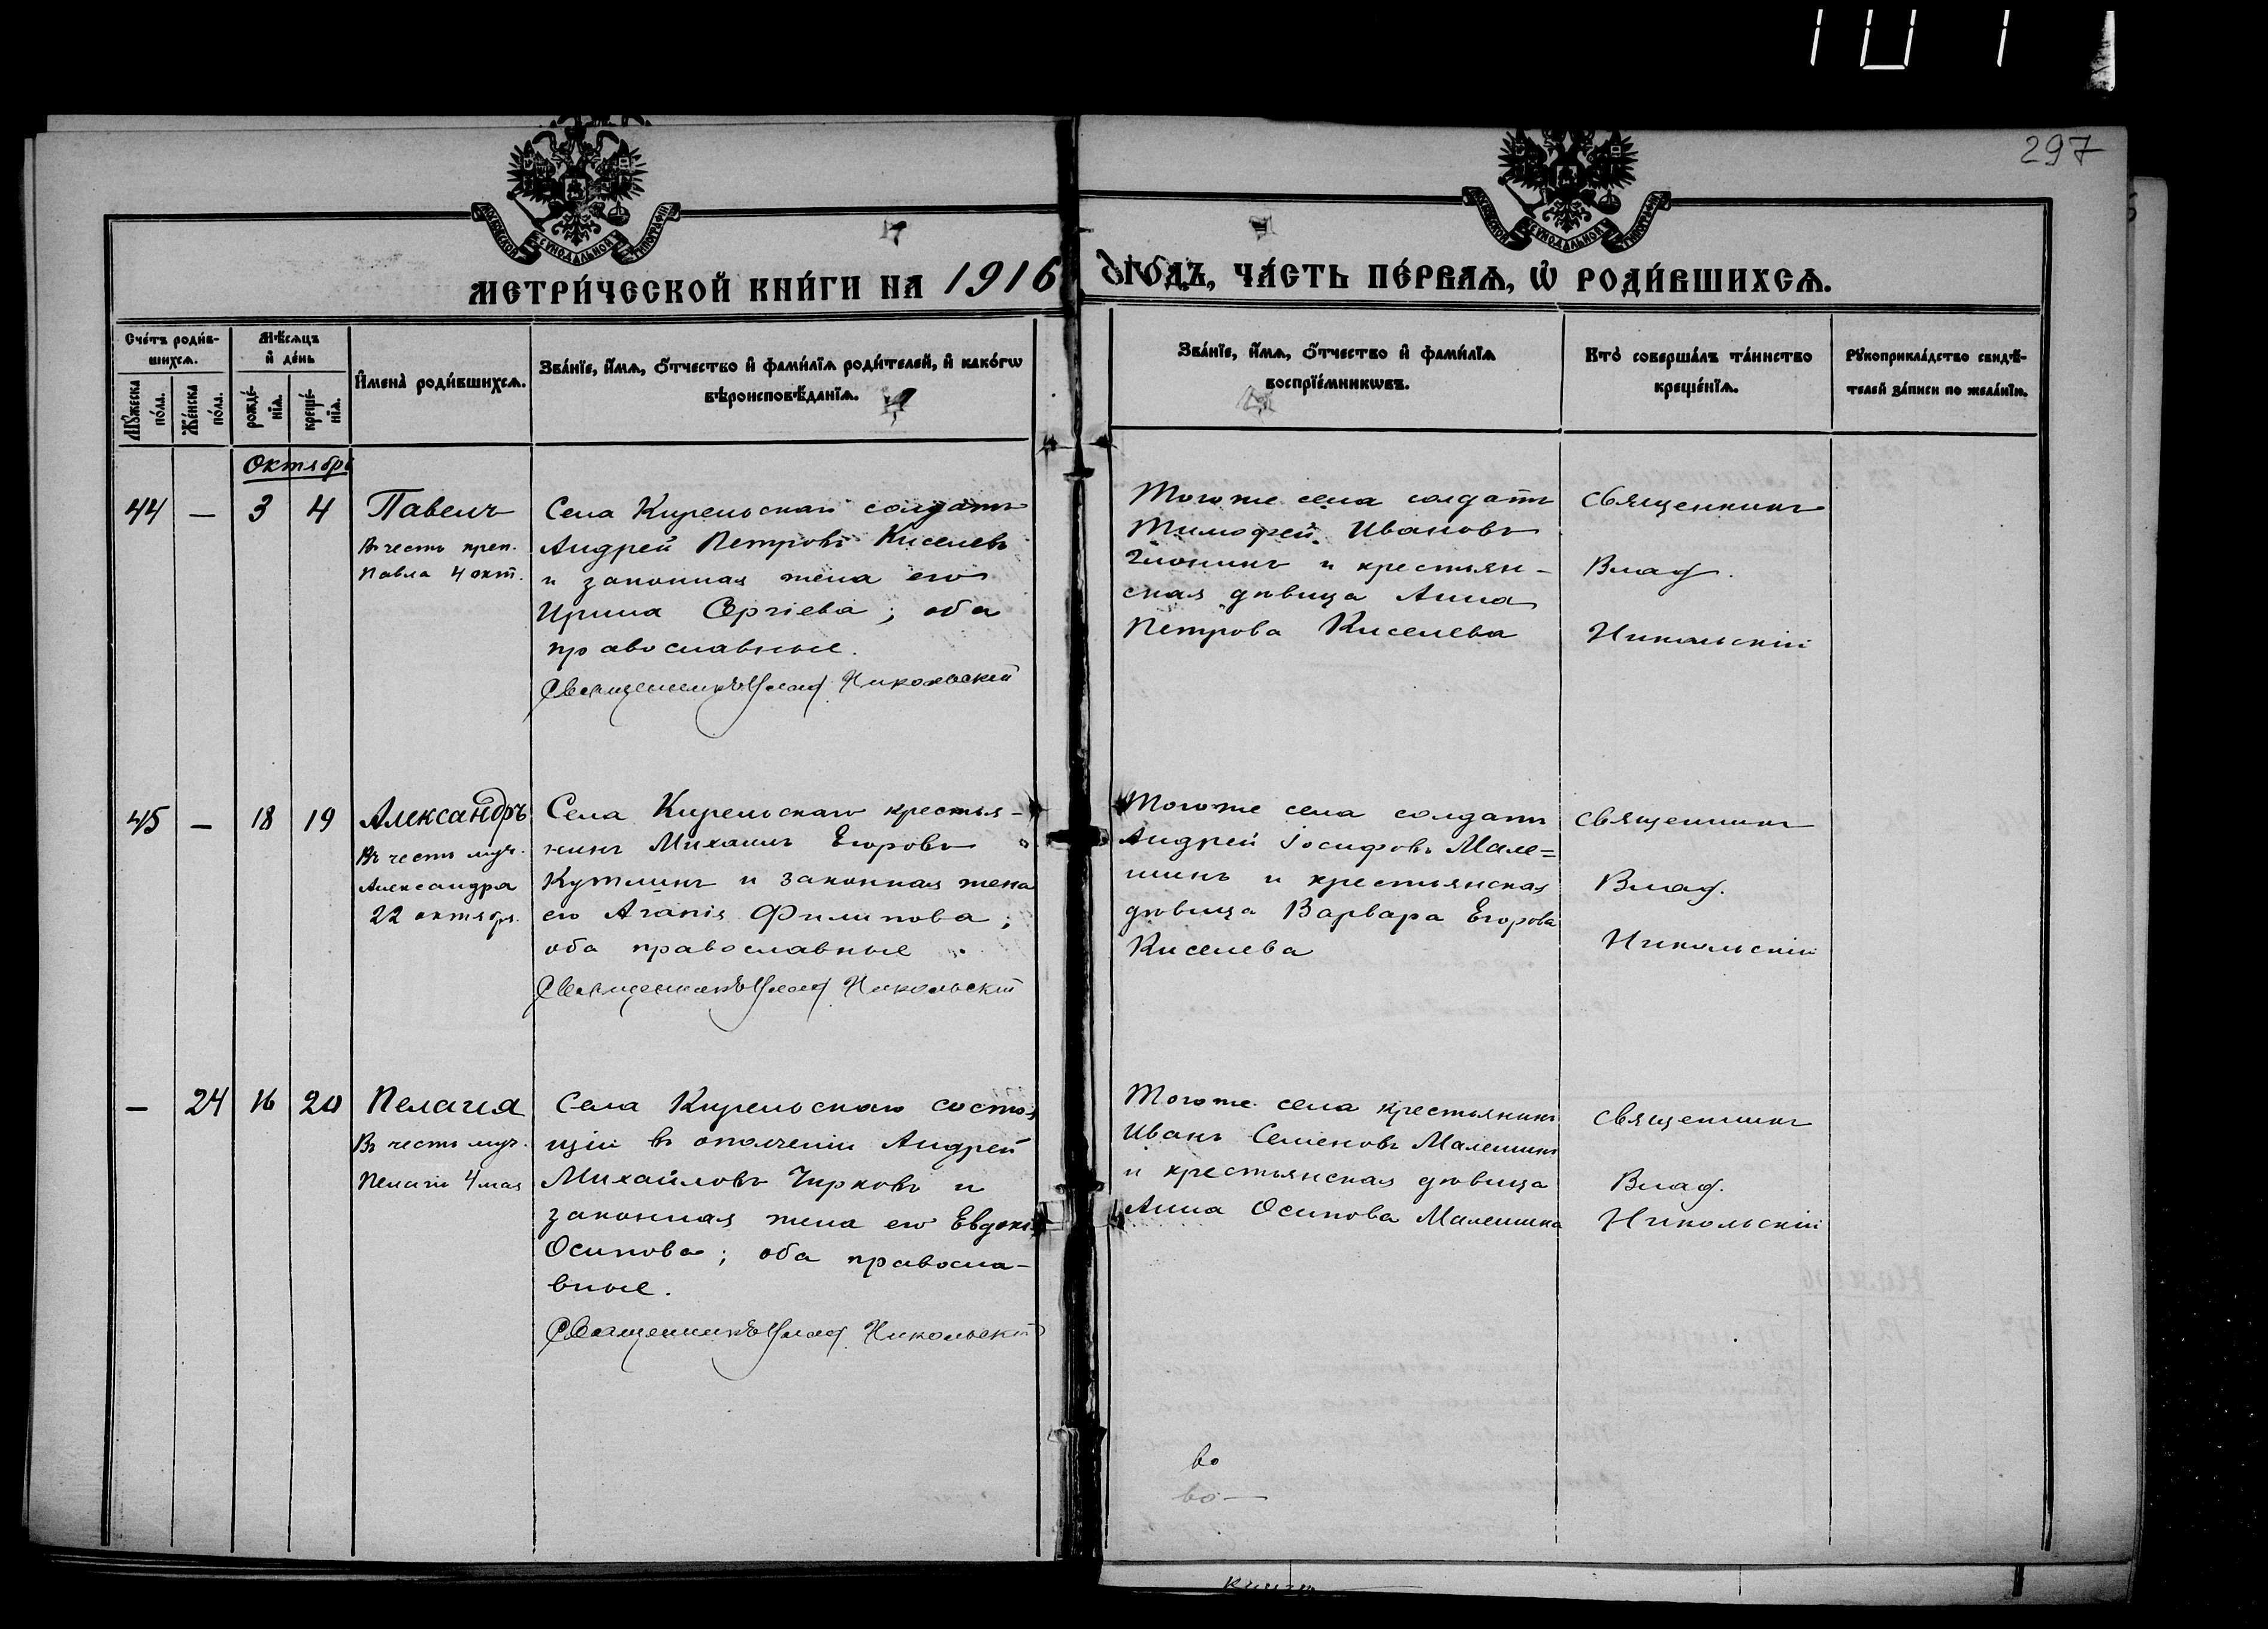 297
МЕТРИ́ЧЕСКОЙ КНИ́ГИ НА 1916 ГОДЪ, ЧА́СТЬ ПЕ́РВАѦ, Ѡ҆ РОДИ́ВШИХСѦ.
Сче́тъ роди́в-
шихсѧ.
Мꙋ́жеска
по́ла.
Же́нска
по́ла.
Мѣ́сѧцъ
и҆ де́нь
рожде́-
нїѧ.
креще́-
нїѧ.
И҆мена̀ роди́вшихсѧ.
Зва́нїе, и҆́мѧ, ѻ҆́тчество и҆ фами́лїѧ роди́телей, и҆ како́гѡ
вѣроисповѣ́данїѧ.
Зва́нїе, и҆́мѧ, ѻ҆́тчество и҆ фами́лїѧ
воспрїе́мникѡвъ.
Кто̀ соверша́лъ та́инство
креще́нїѧ.
Рꙋкоприкла́дство свидѣ́-
телей за́писи по жела́нїю.
Октябрь
44 — 3 4
Павелъ
Въ честь преп.
Павла 4 окт.
Села Кирельскаго солдатъ
Андрей Петровъ Киселевъ
и законная жена его
Ирина Сергіева; оба
православные.
Священникъ Влад. Никольскій
Тогоже села солдатъ
Тимофей Ивановъ
и крестьян-
ская дѣвица Анна
Петрова Киселева
священникъ
Влад.
Никольскій
45 — 18 19
Александръ
Въ честь муч.
Александра
22 октября.
Села Кирельскаго крестья-
нинъ Михаилъ Егоровъ
Кутлинъ и законная жена
его Агапія Филипова;
оба православные.
Священникъ Влад. Никольскій
Тогоже села солдатъ
Андрей Іосифовъ Мале=
шинъ и крестьянская
дѣвица Варвара Егорова
Киселева
священникъ
Влад.
Никольскій
— 24 16 20
Пелагія
Въ честь муч.
Пелагіи 4 мая
Села Кирельскаго состоя
щій въ ополченіи Андрей
Михайловъ Чирковъ и
законная жена его Евдокі
Осипова; оба правосла-
вные.
Священникъ Влад. Никольскій
Тогоже села крестьянинъ
Иванъ Семеновъ Малешинъ
и крестьянская дѣвица
Анна Осипова Малешина
священникъ
Влад.
Никольскій
во
во—